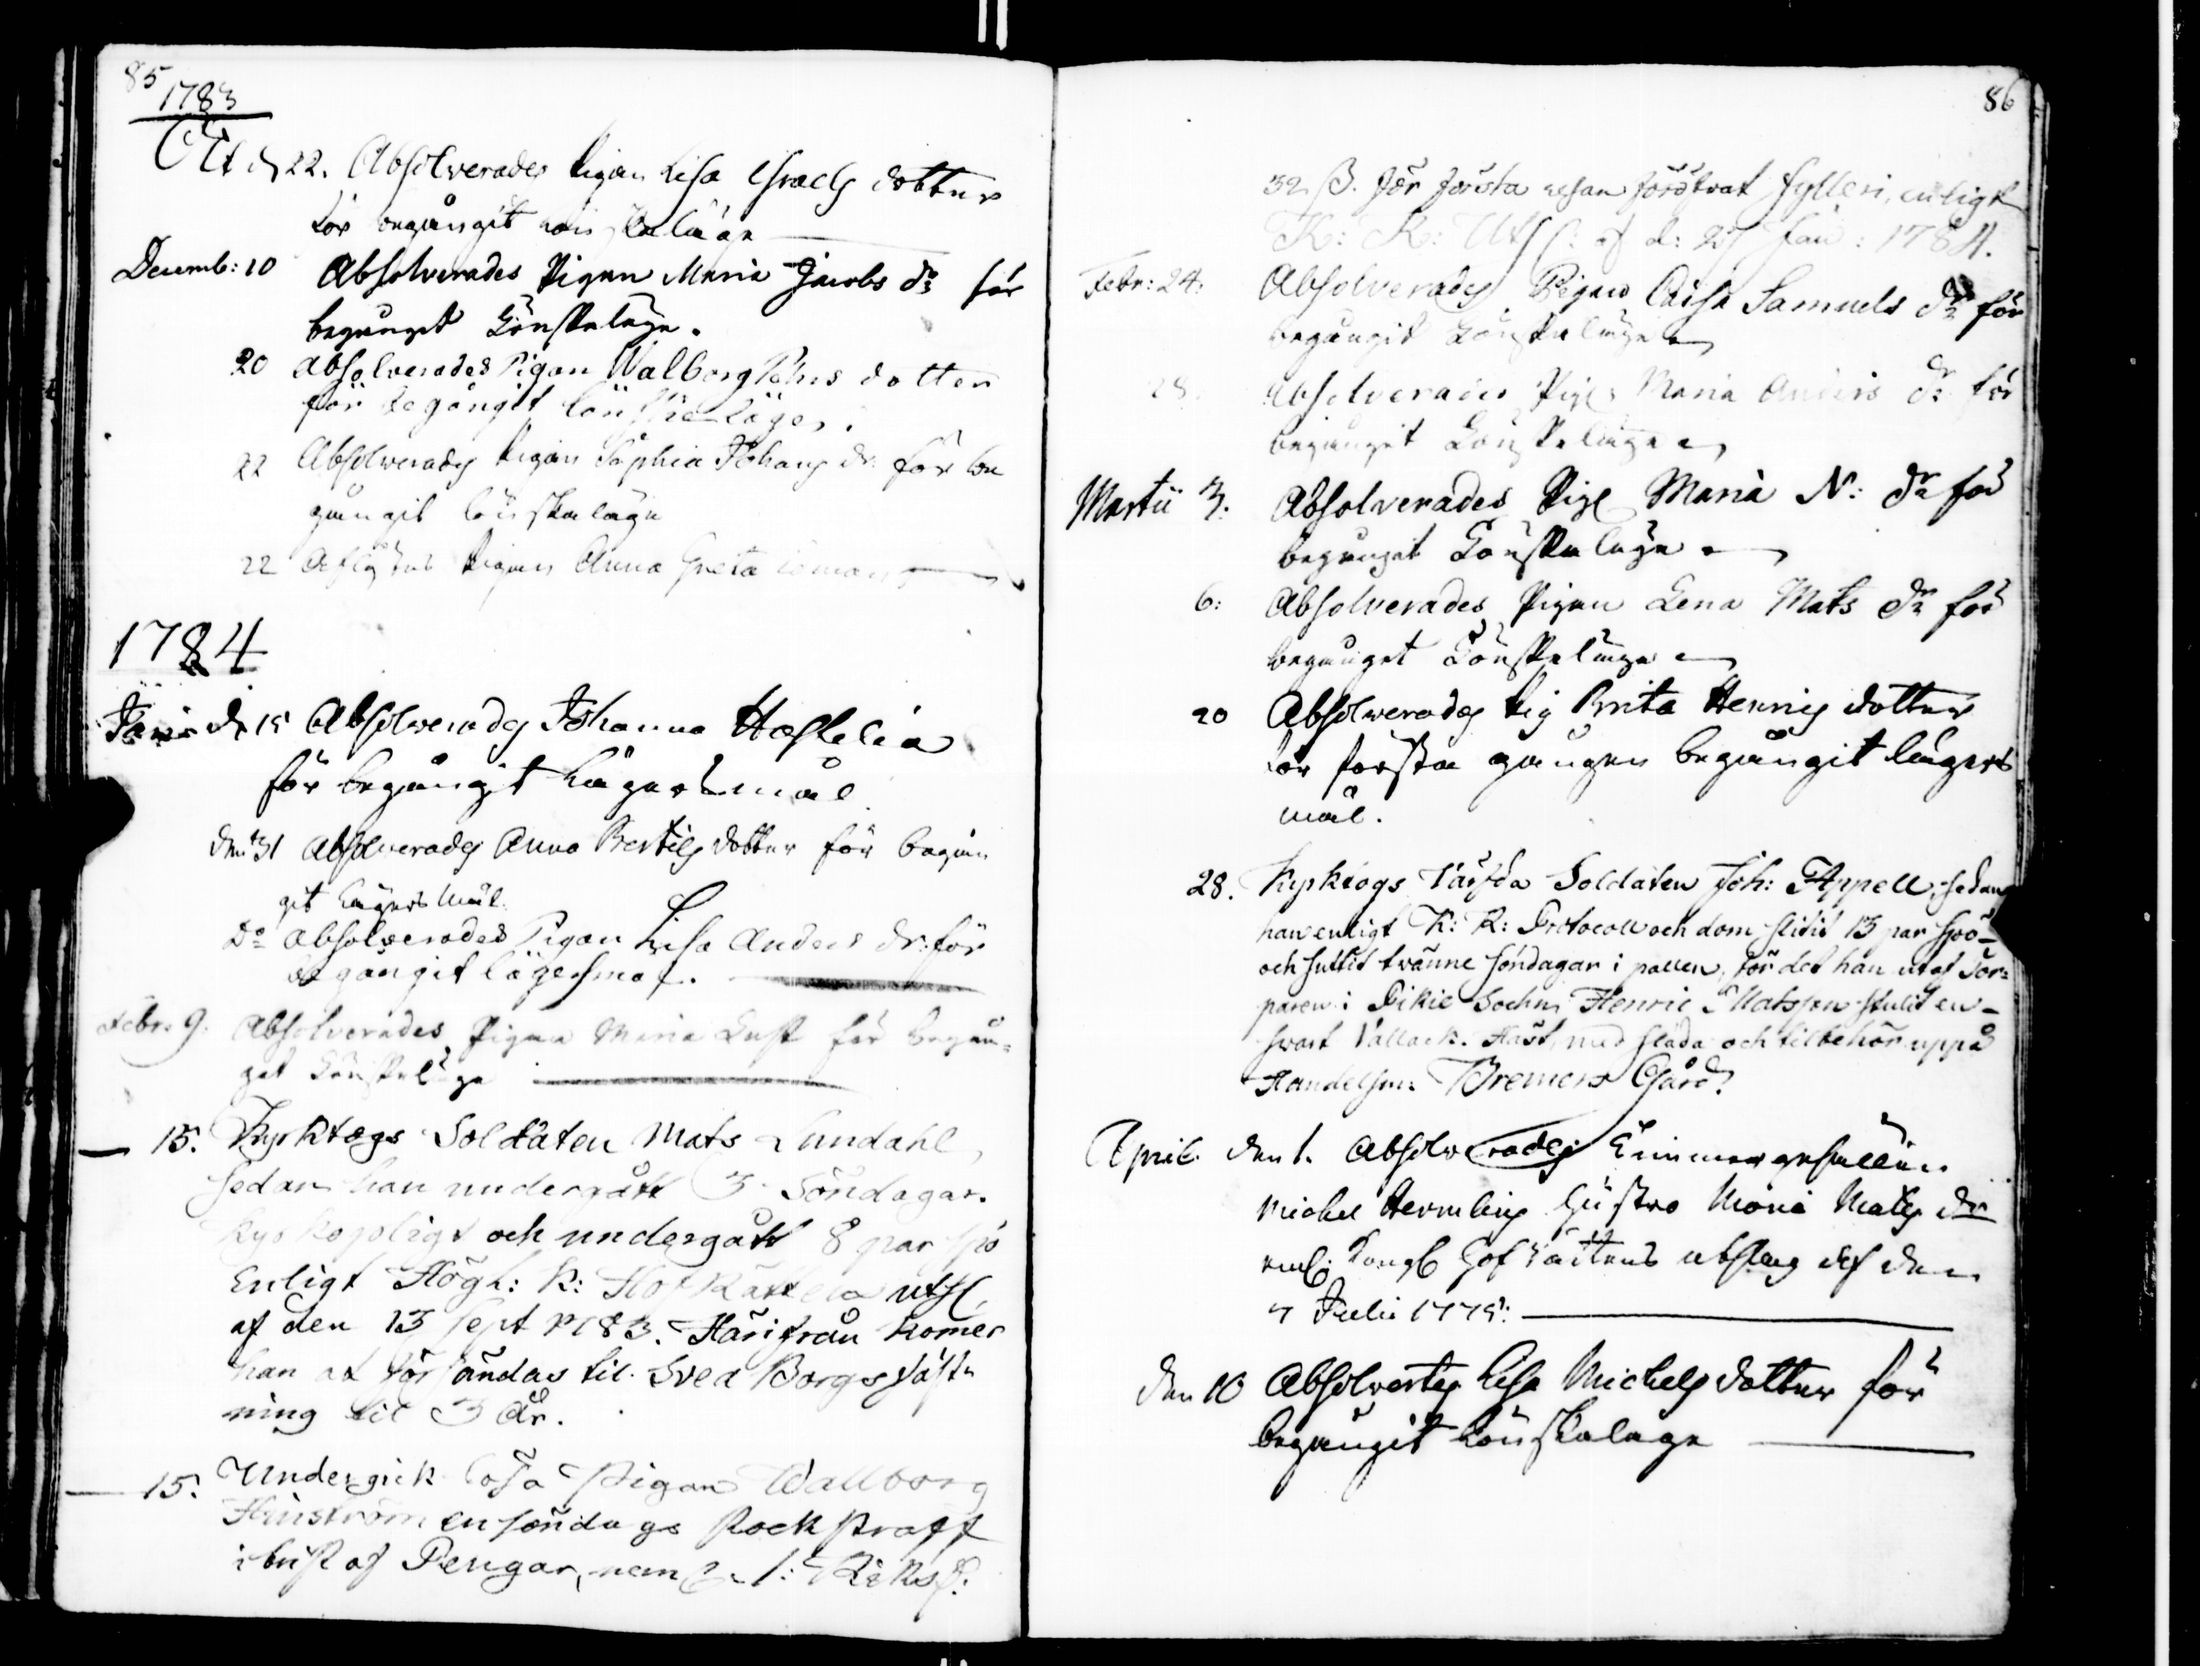 85
1783
Oct d 22. Absolverades Pigan Lisa Israels dotter
för begångit lönskaläge
Decemb: 10 Absolverades Pigan Maria Jacobs dr för
begånget Lönskaläge.
20 absolverades Pigan Walborg dotter
för begångit lönskeläge.
22 Absolverades Pigan Sophia Johans dr för be
gångit lönskaläge
22 Pigan Anna Greta
1784
Janu d 15 Absolverades Johanna Hasselia
för begångit Lägersmål
den 31 absolverades Anna Bertils dotter för begån
git Lägersmål.
Do absolverades Pigan Lisa Anders dr: för
begångit lägersmål.
Febr. 9. Absolverades Pigan Maria Lust för begån=
get Lönskeläge
15. Kyrktogs Soldaten Mats Lundahl,
sedan han undergått 3 Söndagar.
Kyrkopligt och undergått 8 par spö
Enligt Högl: K: HofRättens utsl,
af den 13 Sept 1783. Härifrån komer
han at försändas til Svea Borgs fäst-
ning til 3 År.
15. Undergick Lösa Pigan Wallborg
en söndags stock straff
i brist af Pengar, neml. 1: Riksd.
86
32 ß. för första resan föröfvat fylleri, enligt
K: R: Utsl: af d: 27 Jan: 1784.
Febr: 24. Absolverades Pigan Caisa Samuels dr för
begångit Lönskaläge
28. Absolverades Pig. Maria Anders dr för
begånget Lönskeläge
Martii 3. Absolverades Pig. Maria N: dr för
begånget Lönskeläge
6: Absolverades Pigan Lena Mats dr för
begånget Lönskeläge
20 Absolverades Pig Brita Henrics dotter
för första gången begångit lägers
mål.
28. Kyrktogs Värfda Soldaten Joh: Appell, sedan
han enligt K: R: Protocoll och dom slitit 13 par spö-
och suttit twänne söndagar i pallen, för det han utaf Tor=
paren i Pikie Sochn Henric Matsson stulit en-
swart Vallack. Häst, med släda och tilbehör uppå
Handelsm: Bremers Gård.
April. den 1. Absolverades Timmergesellen
Michel Hermelins Hustro Maria Mats dr
enl: Kongl HofRättens utslag af den
7 Julii 1775:
den 10 Absolvertes Lisa Michels dotter för
begångit Lönskaläge